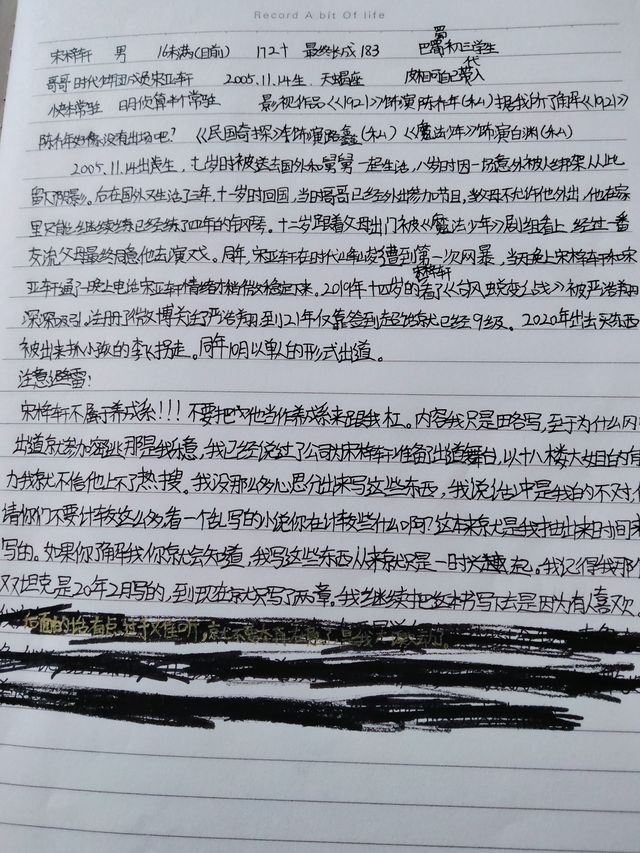 Record A bit Of life
宋梓轩 男 16未满(目前) 172+ 最终长成183 巴蜀初三学生
哥哥时代少年团成员宋亚轩 2005.11.14生 天蝎座 皮相可自己带入
快本常驻 明侦算半个常驻 影视作品《1921》饰演陈乔年(私)
陈乔年好像没有出场吧? 《民国奇探》饰演路鑫(私)《魔法少年》饰演白渊(私)
2005.11.14出生,七岁时被送去国外和舅舅一起生活,八岁时因一场意外被人绑架从此
留下阴影。后在国外又生活了三年,十一岁时回国,当时哥哥已经外出参加节目,父母不允许他外出,他在家
里只能继续练已经练了四年的钢琴。十二岁跟着父母出门被《魔法少年》剧组看上,经过一番
交流父母最终同意他去演戏。同年,宋亚轩在时代少年遭到第一次网暴,当天晚上宋梓轩和宋
亚轩通了一晚上电话宋亚轩情绪才稍微稳定下来。2019年十四岁的宋梓轩看了《台风蜕变之战》被严浩翔
深深吸引,注册了微博关注了严浩翔到21年仅靠签到超话就已经9级。2020年出去买东西
被出来抓小孩的李飞拐走。同年10月以单人的形式出道。
注意避雷:
宋梓轩不属于养成系!!!不要把他当作养成系来跟我杠。内容我只是略写,至于为什么
出道就参加密逃那是我乐意,我已经说过了公司为宋梓轩准备了出道舞台,以十八楼大姐的
力我就不信他上不了热搜。我没那么多心思分出来写这些东西,我说
请你们不要计较这么多,看一个乱写的小说你在计较些什么啊?这本来就是我抽出来的时间
写的。如果你了解我你就会知道,我写这些东西从来就只是一时兴起。我记得我那
双坦克是20年2月写的,到现在就只写了两章。我继续把这本书写下去是因为有人喜欢